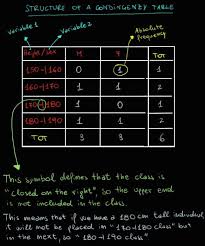 STRUCTURE OF A CONTINGENCY TABLE
Variable 1
Variable 2
Absolute frequency
Height/sex M F TOT
150-|160 0 1 1
160-|170 1 1 2
170-|180 1 0 1
180-|190 1 1 2
TOT 3 3 6
This symbol defines that the class is
"closed on the right", so the upper end
is not included in the class.
This means that if we have a 180 cm tall individual,
it will not be placed in "170-|180 class" but
in the next, so "180-|190 class"